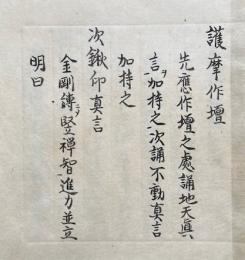 護摩作壇
先應作壇之處誦地天真
言ヲ加持之次誦不動真言
加持之
次鍬印真言
金剛縛ニテ竪禅智進力並立
明曰